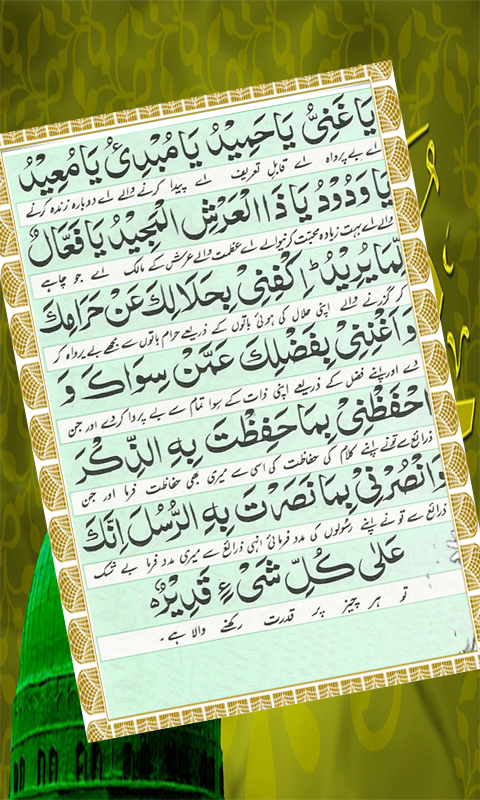 يَا غَنِىُّ يَا حَمِيْدُ يَا مُبْدِئُ يَا مُعِيْدُ
اے بے پرواہ اے قابل تعریف اے پیدا کرنے والے اے دوبارہ زندہ کرنے
يَا وَدُوْدُ يَا ذَا الْعَرْشِ الْمَجِيْدُ يَا فَعَّالٌ
والے اے بہت زیادہ محبت کرنیوالے اے عظمت والے عرش کے مالک اے جو چاہے
لِّمَا يُرِيْدُ ط اِكْفِنِىْ بِحَلَالِكَ عَنْ حَرَامِكَ
کر گزرنے والے اپنی حلال کی ہوئی باتوں کے ذریعے حرام باتوں سے مجھے بے پرواہ کر
وَاَغْنِنِىْ بِفَضْلِكَ عَمَّنْ سِوَاكَ وَ
دے اور اپنے فضل کے ذریعے اپنی ذات کے سوا تمام سے بے پروا کردے اور جن
احْفَظْنِىْ بِمَا حَفِظْتَ بِهِ الذِّكْرَ
ذرائع سے تو نے اپنے کلام کی حفاظت کی اسی سے میری بھی حفاظت فرما اور جن
وَانْصُرْنِىْ بِمَا نَصَرْتَ بِهِ الرُّسُلَ اِنَّكَ
ذرائع سے تو نے اپنے رسولوں کی مدد فرمائی انہی ذرائع سے میری مدد فرما بے شک
عَلٰى كُلِّ شَىْءٍ قَدِيْرٌ
تو ہر چیز پر قدرت رکھنے والا ہے۔